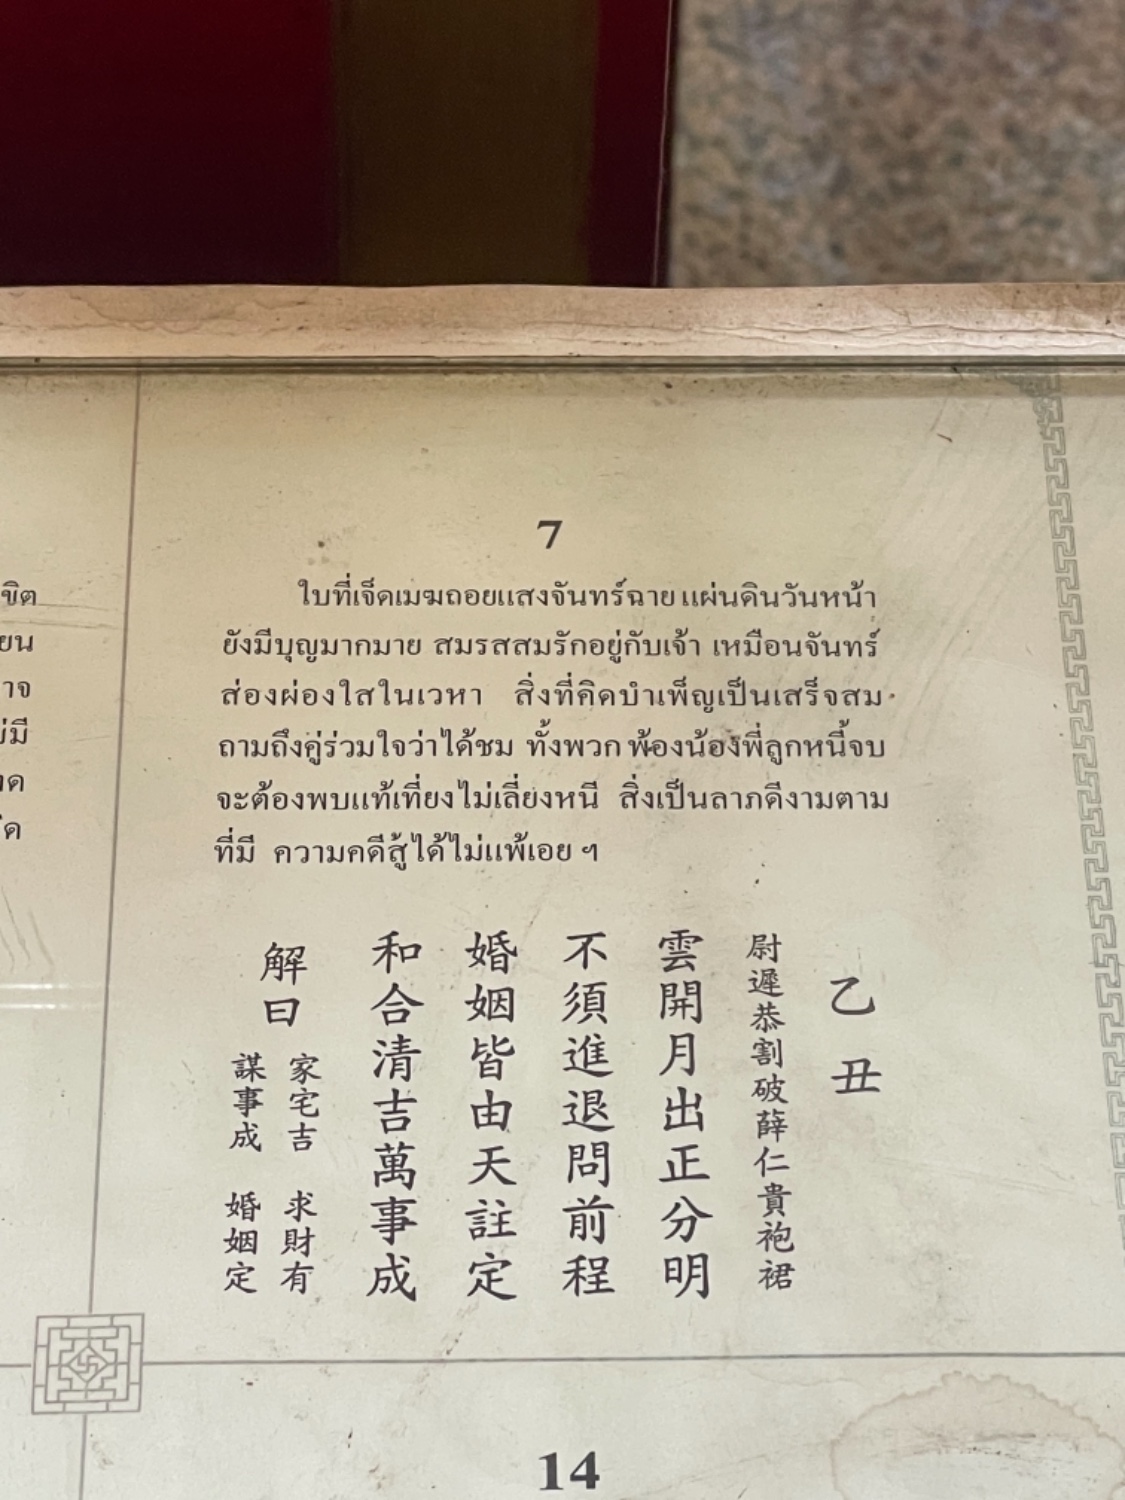 7
ใบที่เจ็ดเมฆถอยแสงจันทร์ฉาย แผ่นดินวันหน้า
ยังมีบุญมากมาย สมรสสมรักอยู่กับเจ้า เหมือนจันทร์
ส่องผ่องใสในเวหา สิ่งที่คิดบำเพ็ญเป็นเสร็จสม
ถามถึงคู่ร่วมใจว่าได้ชม ทั้งพวก พ้องน้องพี่ลูกหนี้จบ
จะต้องพบแท้เที่ยงไม่เลี่ยงหนี สิ่งเป็นลาภดีงามตาม
ที่มี ความคดีสู้ได้ไม่แพ้เอย ฯ
乙丑
尉遲恭割破薛仁貴袍裙
雲開月出正分明
不須進退問前程
婚姻皆由天註定
和合清吉萬事成
解曰
家宅吉 求財有
謀事成 婚姻定
ขิต
ยน
าจ
มี
ด
ด
14